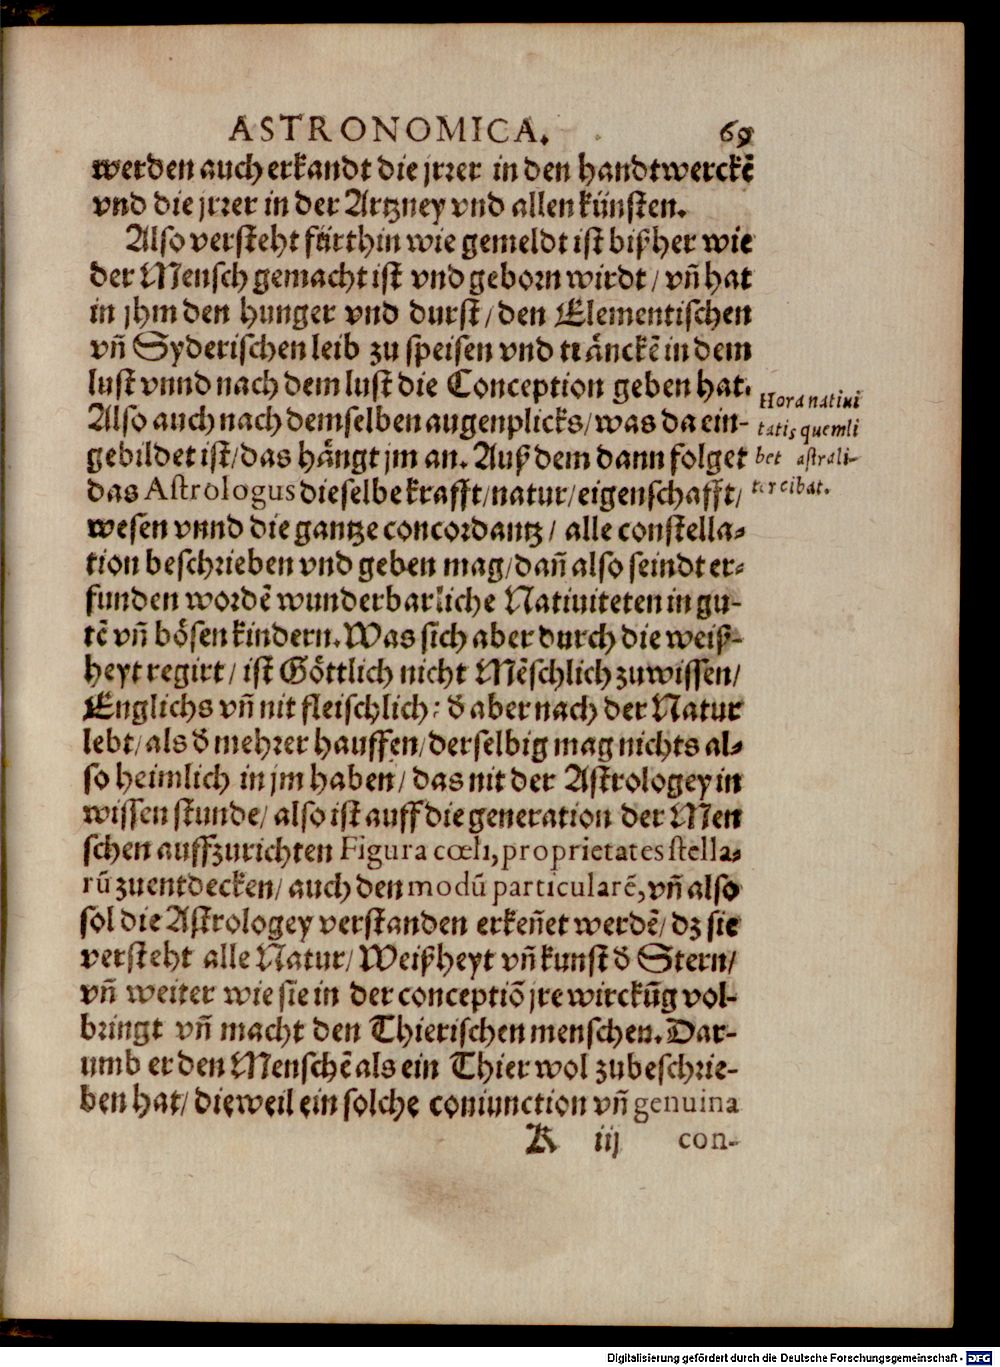 ASTRONOMICA. 69
werden auch erkandt die jrrer in den handtwerckẽ
vnd die jrrer in der Artzney vnd allen künsten.
Also versteht fürthin wie gemeldt ist bißher wie
der Mensch gemacht ist vnd geborn wirdt / vñ hat
in jhm den hunger vnd durst / den Elementischen
vñ Syderischen leib zu speisen vndträncken̄ in dem
lust vnnd nach dem lust die Conception geben hat.
Also auch nach demselben augenplicks / was da ein-
gebildet ist / das hångt jm an. Auß dem dann folget
das Astrologus dieselbe krafft / natur / eigenschafft /
wesen vnnd die gantze concordantz / alle constella-
tion beschrieben vnd geben mag / dañ also seindt er-
funden wordẽ wunderbarliche Natiuiteten in gu-
tẽ vñ bösen kindern. Was sich aber durch die weiß-
heyt regirt / ist Göttlich nicht Mẽschlich zuwissen /
Englichs vñ nit fleischlich: d̃ aber nach der Natur
lebt / als d̃ mehrer hauffen / derselbig mag nichts al-
so heimlich in jm haben / das nit der Astrologey in
wissen stunde / also ist auff die generation der Men
schen auffzurichten Figura cœli, proprietates stella-
rũ zuentdecken / auch den modũ particularẽ, vñ also
sol die Astrologey verstanden erkeñet werdẽ / dz sie
versteht alle Natur / Weißheyt vñ kunst d̃ Stern /
vñ weiter wie sie in der conceptiõ jre wirckũg vol-
bringt vñ macht den Thierischen menschen. Dar-
umb er den Menschẽ als ein Thier wol zubeschrie-
ben hat / dieweil ein solche coniunction vñ genuina
K iij con-
Hora natiui
tatis quemli
bet astrali-
ter cibat.
Digitalisierung gefördert durch die Deutsche Forschungsgemeinschaft - DFG